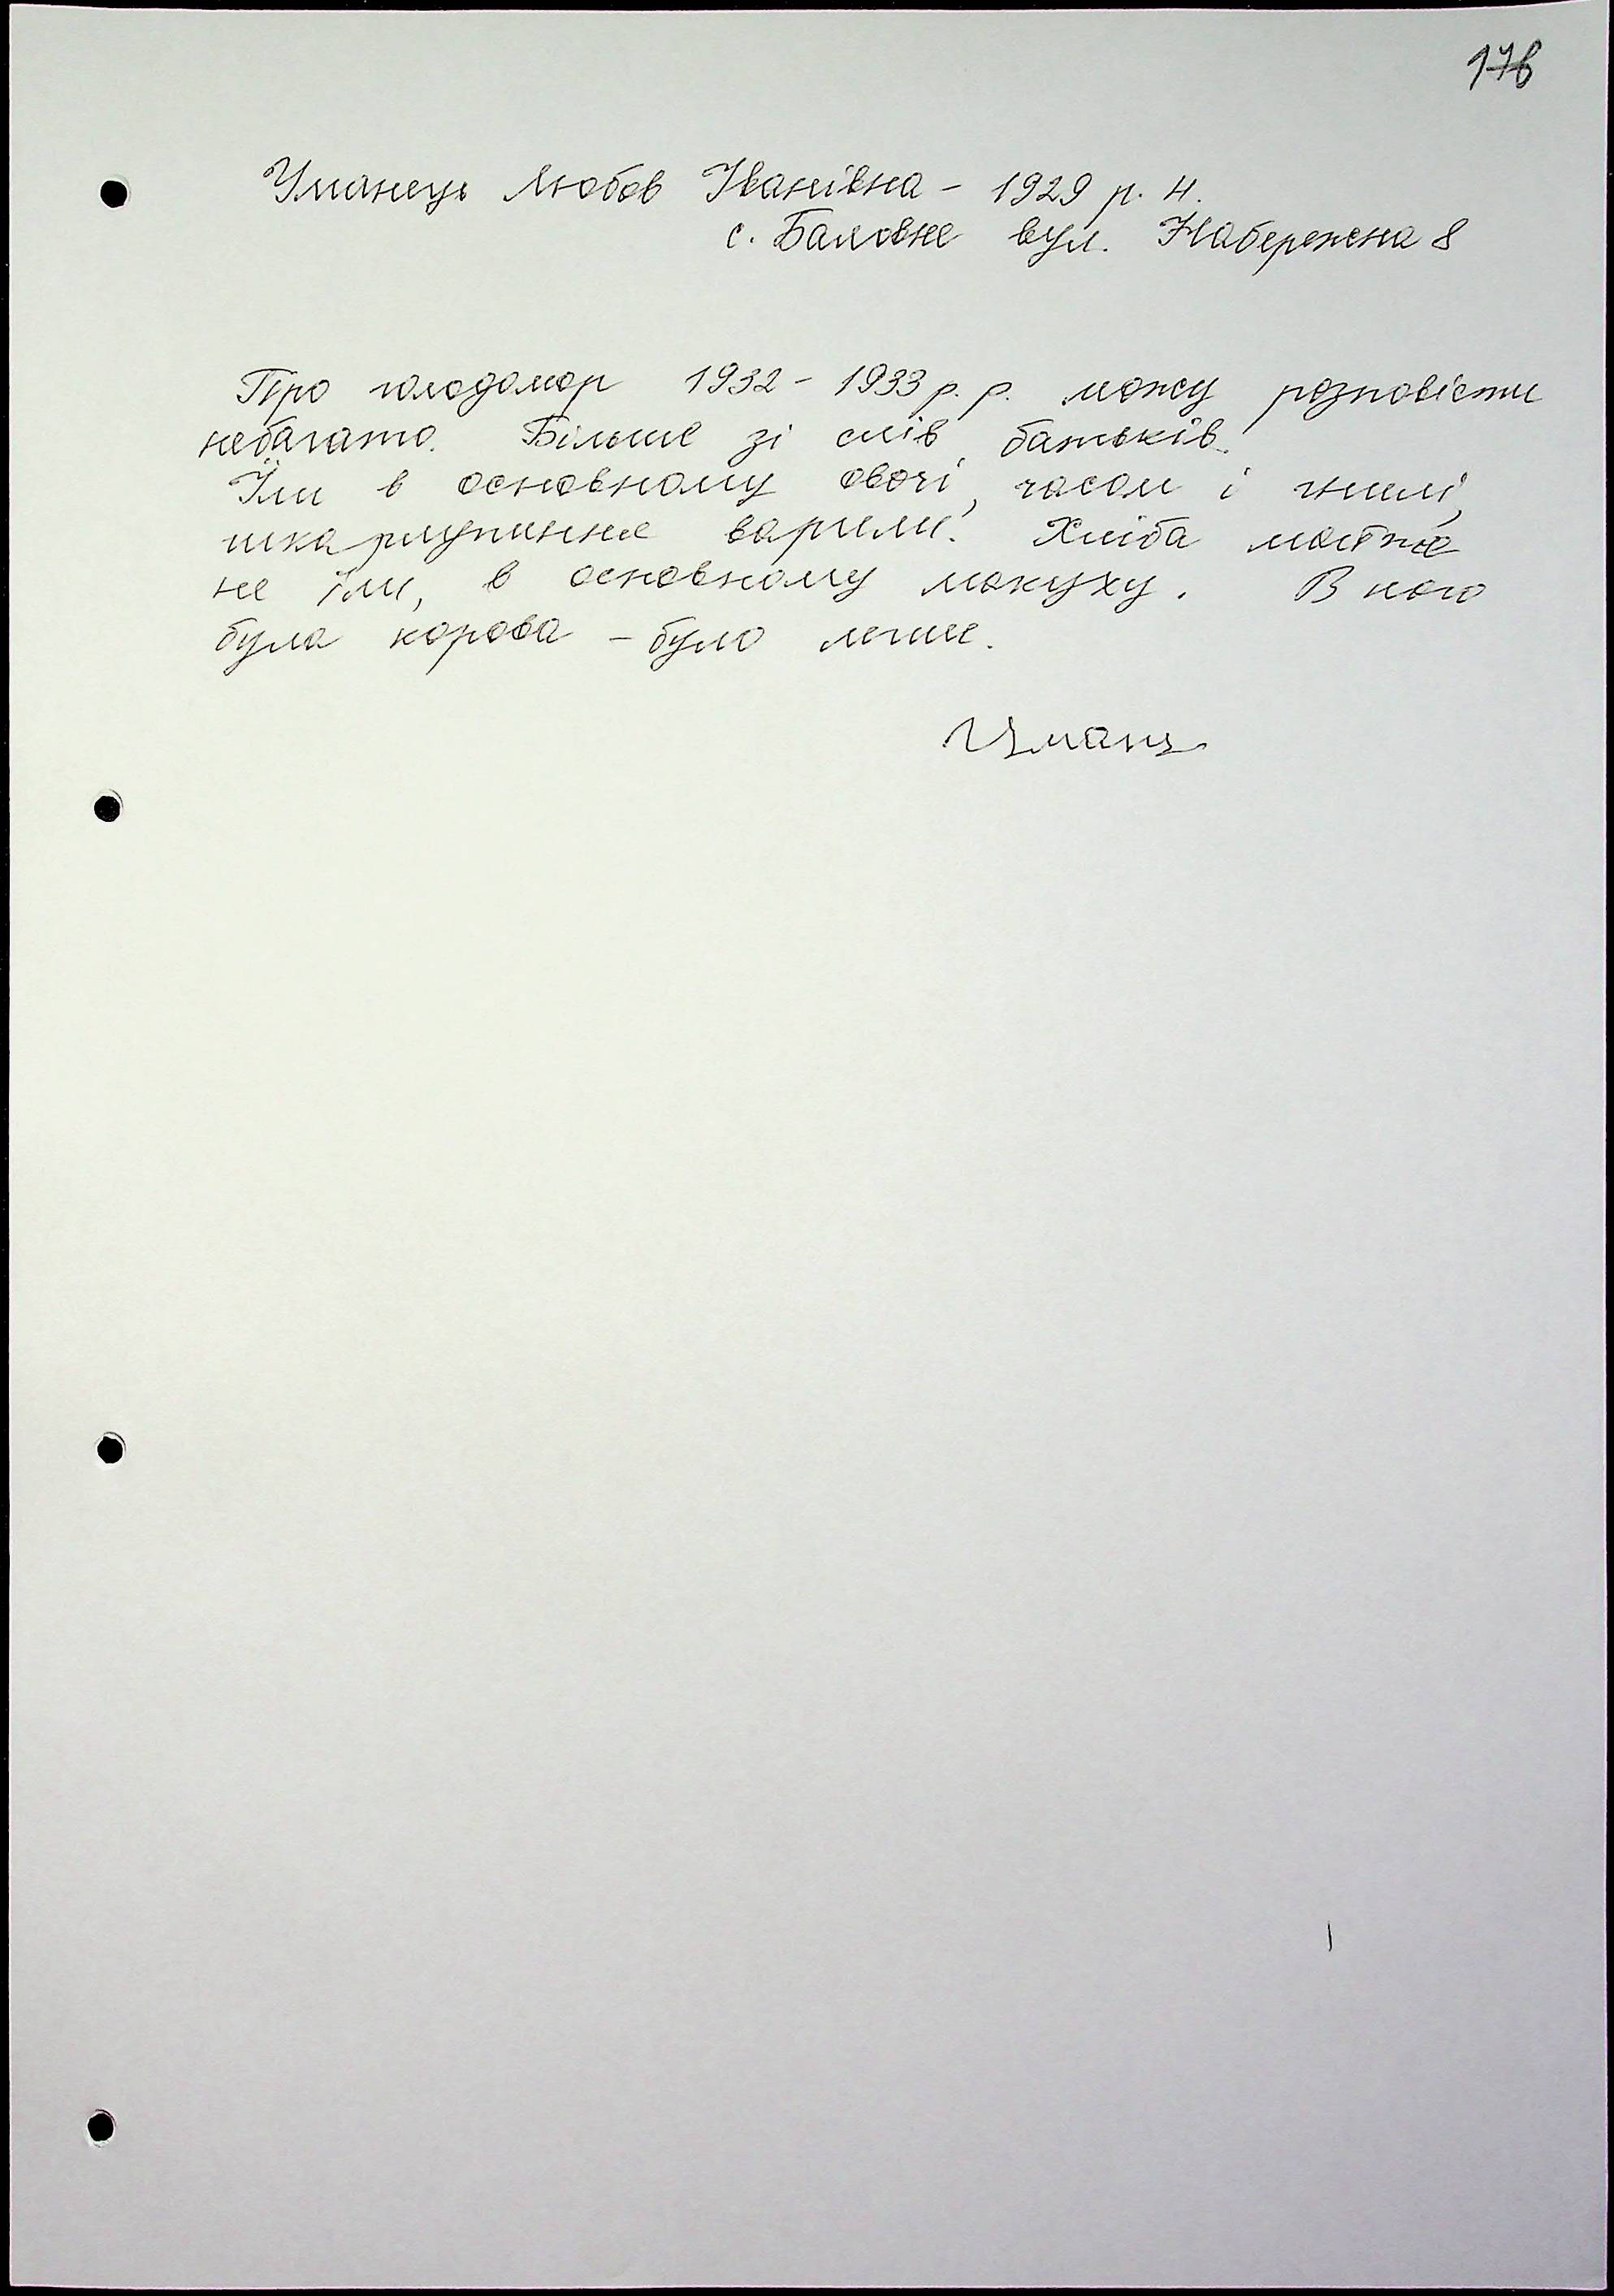 176
Уманець Любов Іванівна - 1929 р. н.
с. Баловне вул. Набережна 8
Про голодомор 1932 - 1933 р. р. можу розповісти
небагато. Більше зі слів батьків.
Їли в основному овочі, часом і гнилі,
шкарлупиння варили. Хліба майже
не їли, в основному макуху. В кого
була корова - було легше.
Уманец